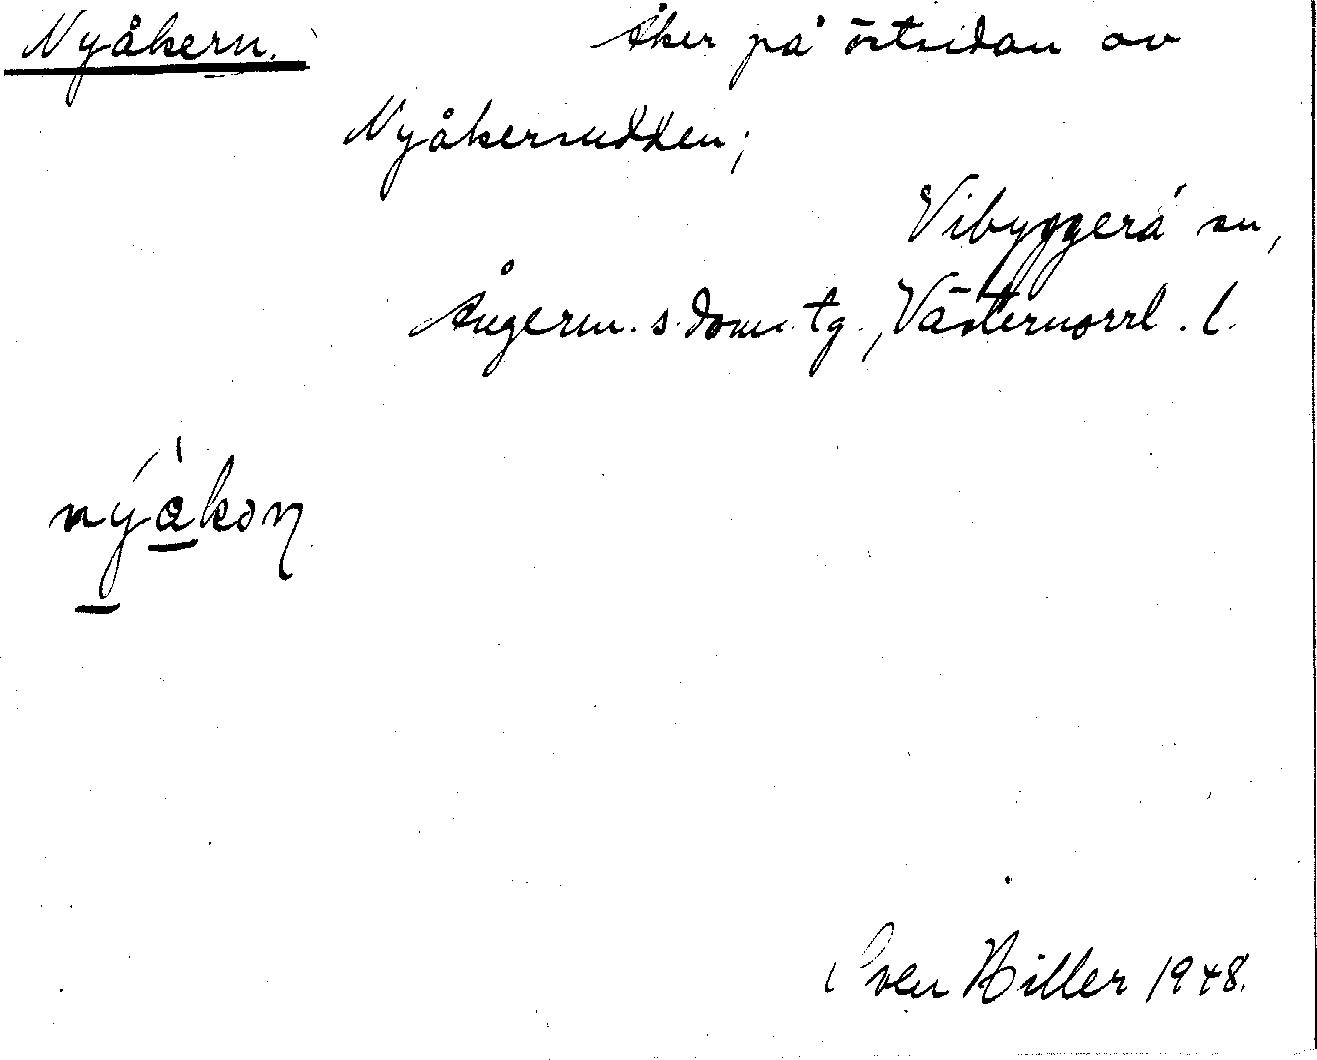 Nyåkern. Åker på östsidan av
Nyåkersudden;
Vibyggerå sn,
Ångerm. s. doms. tg., Västernorrl. l.
Sven Hiller 1948.